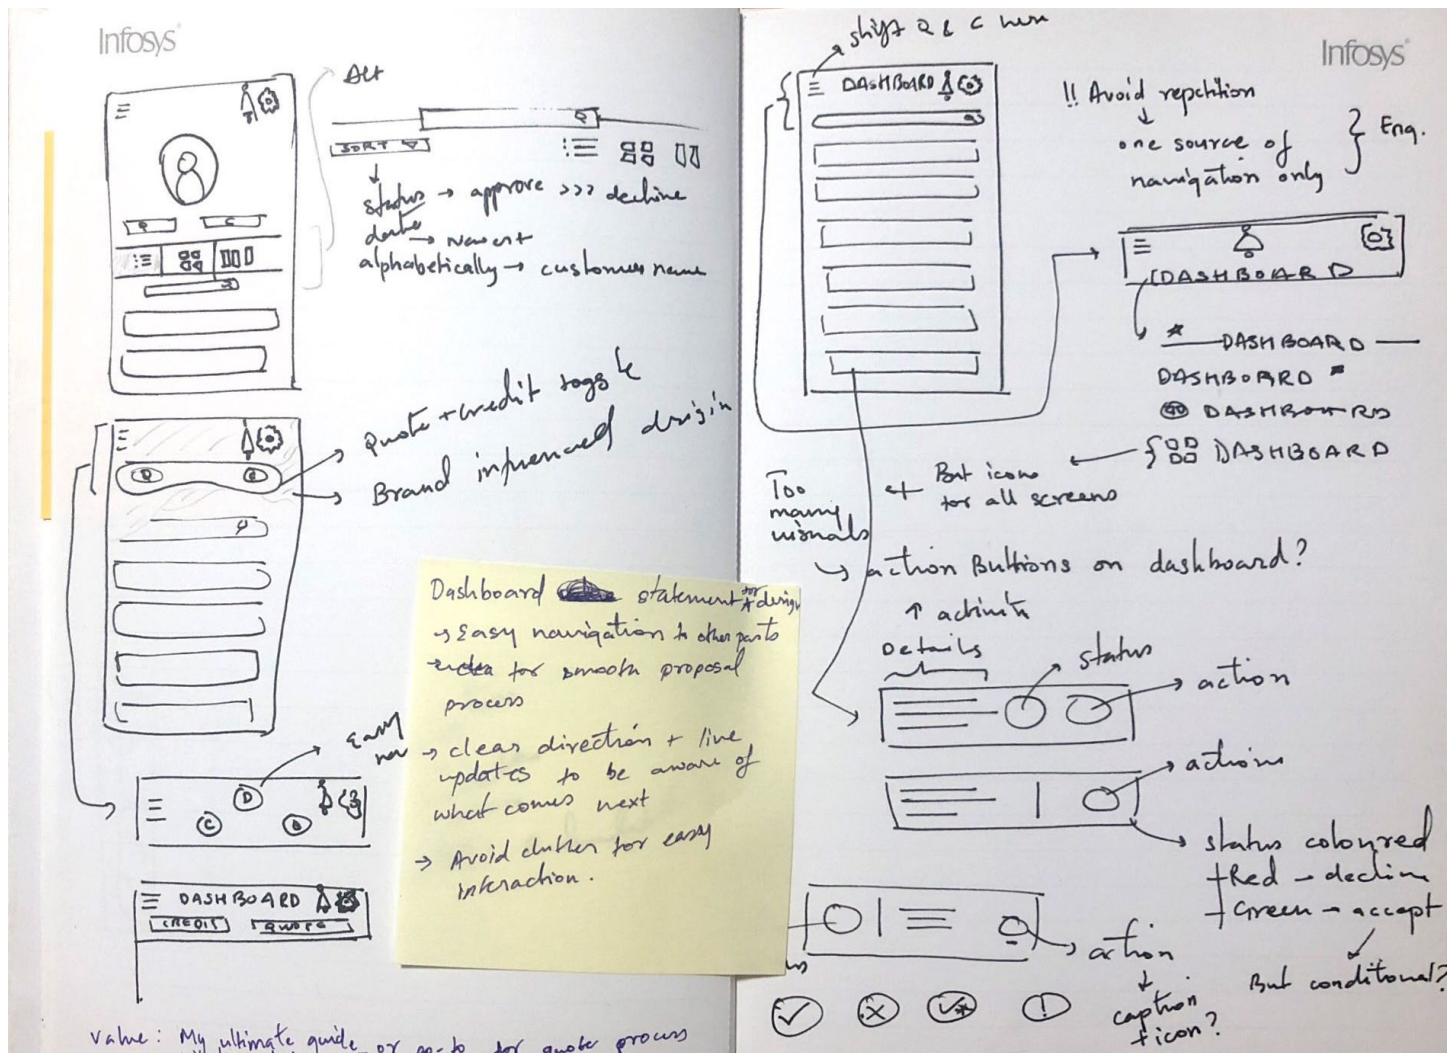 Infosys
Alt
Q
SORT
status → approve >>> decline
date → Newest
alphabetically → customer name
Q C
Quote + credit toggle
Brand influenced design
Easy
nav
D
C
DASHBOARD
CREDIT QUOTE
Dashboard statement for design
→ Easy navigation to other parts
for smooth proposal
process
→ clear direction + live
updates to be aware of
what comes next
→ Avoid clutter for easy
interaction.
value: My ultimate guide or go-to for quote process
Infosys
shift Q & C here
DASHBOARD
!! Avoid repetition
one source of
navigation only
Enq.
DASHBOARD
DASHBOARD
DASHBOARD
DASHBOARD
DASHBOARD
But icons
for all screens
Too
many
visuals
action Buttons on dashboard?
Details
status
action
actions
status coloured
Red - decline
Green - accept
But conditional?
action
caption
+ icon?